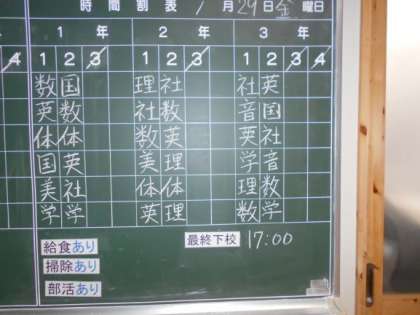 時間割表 /月29日金曜日
1年 2年 3年
4 1 2 3 1 2 3 1 2 3 4
数国 理社 社英
英数 社数 音国
体体 数英 英社
国英 美理 学音
美社 体体 理数
学学 英理 数学
給食あり 最終下校 17:00
掃除あり
部活あり